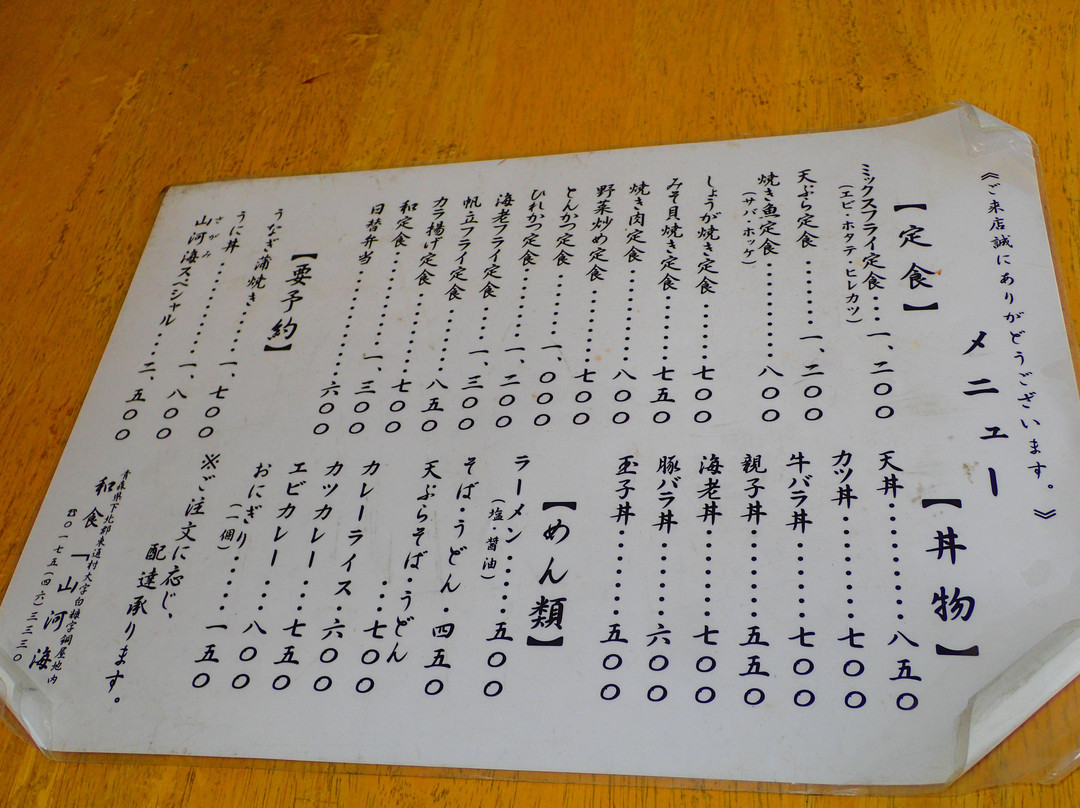 《ご来店誠にありがとうございます。》
メニュー
【定食】
ミックスフライ定食…一、二〇〇
(エビ・ホタテ・ヒレカツ)
天ぷら定食……一、二〇〇
焼き魚定食………八〇〇
(サバ・ホッケ)
しょうが焼き定食……七〇〇
みそ貝焼き定食……七五〇
焼き肉定食………八〇〇
野菜炒め定食………七〇〇
とんかつ定食……一、〇〇〇
ひれかつ定食……一、二〇〇
海老フライ定食……一、三〇〇
帆立フライ定食………八五〇
カラ揚げ定食………七〇〇
和定食…………一、三〇〇
日替弁当…………六〇〇
【要予約】
うなぎ蒲焼き……一、七〇〇
うに丼…………一、八〇〇
さがみ
山河海スペシャル……二、五〇〇
【丼物】
天丼…………八五〇
カツ丼…………七〇〇
牛バラ丼………七〇〇
親子丼…………五五〇
海老丼…………七〇〇
豚バラ丼………六〇〇
玉子丼…………五〇〇
【めん類】
ラーメン……五〇〇
(塩・醤油)
そば・うどん・四五〇
天ぷらそば・うどん
…七〇〇
カレーライス・六〇〇
カツカレー…七五〇
エビカレー…八〇〇
おにぎり……一五〇
(一個)
※ご注文に応じ、
配達承ります。
青森県下北郡東通村大字白糠字銅屋地内
和食「山河海
☎〇一七五(四六)三三三〇